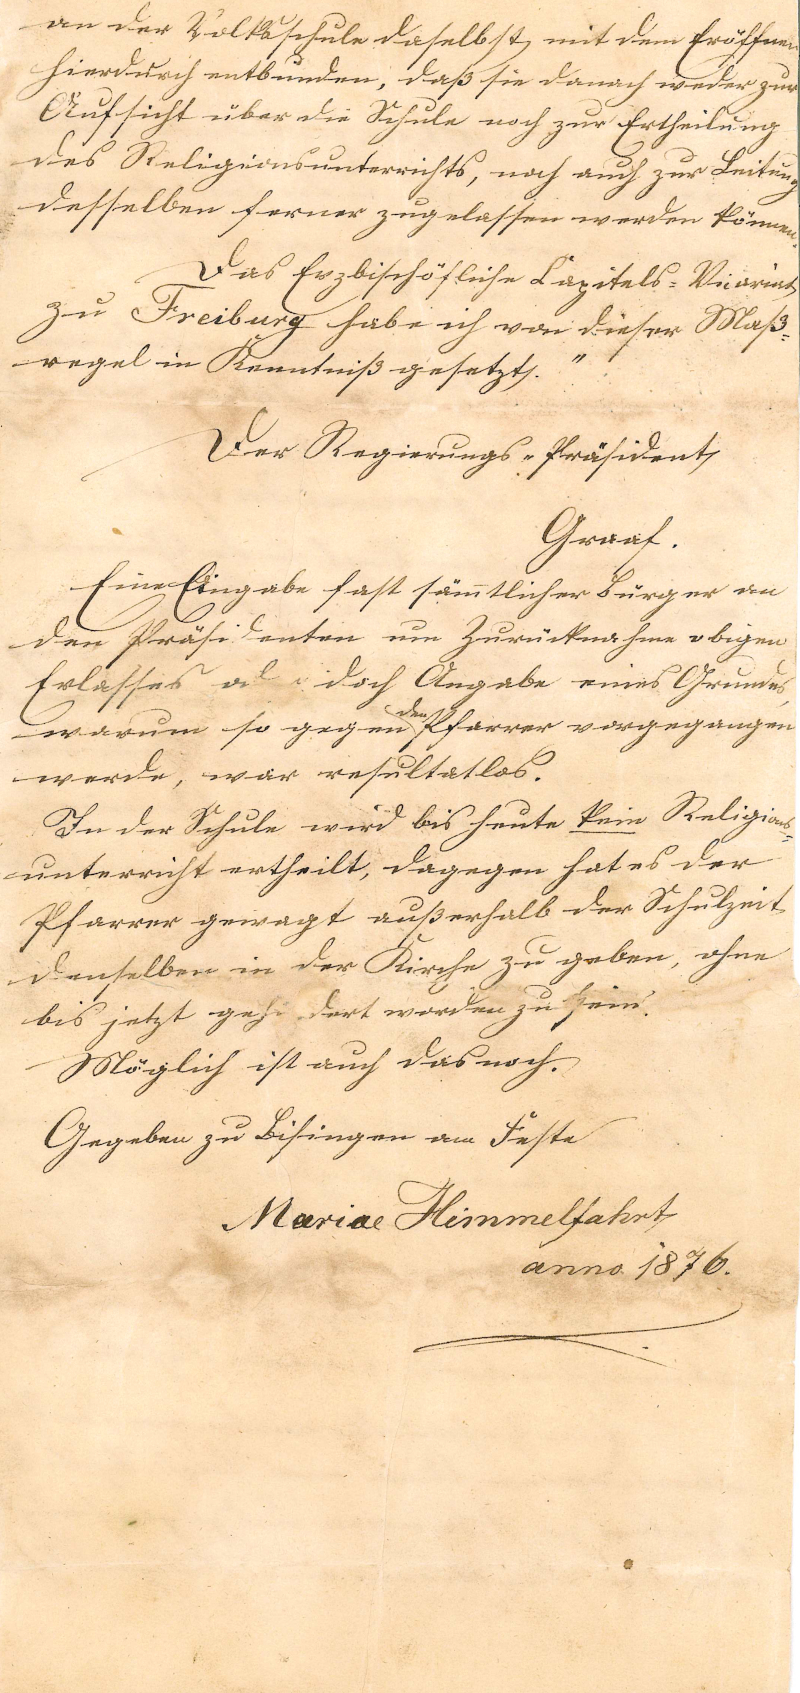 an der Volksschule daselbst, mit dem Eröffnen
hierdurch entbunden, daß sie danach weder zur
Aufsicht über die Schule noch zur Ertheilung
des Religionsunterrichts, noch auch zur Leitung
desselben ferner zugelassen werden können.
Das Erzbischöfliche Capitels-Vicariat
zu Freiburg habe ich von dieser Maß-
regel in Kenntniß gesetzt."
Der Regierungs-Präsident
Graaf.
Eine Eingabe fast sämtlicher Bürger an
den Präsidenten um Zurücknahme obigen
Erlasses od doch Angabe eines Grundes,
warum so gegen den Pfarrer vorgegangen
werde, war resultatlos.
In der Schule wird bis heute kein Religions-
unterricht ertheilt, dagegen hat es der
Pfarrer gewagt außerhalb der Schulzeit
denselben in der Kirche zu geben, ohne
bis jetzt gehi dert worden zu sein.
Möglich ist auch das noch.
Gegeben zu Bisingen am Feste
Mariae Himmelfahrt
anno 1876.